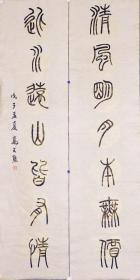 清風明月本無價
近水遠山皆有情
戊子孟夏